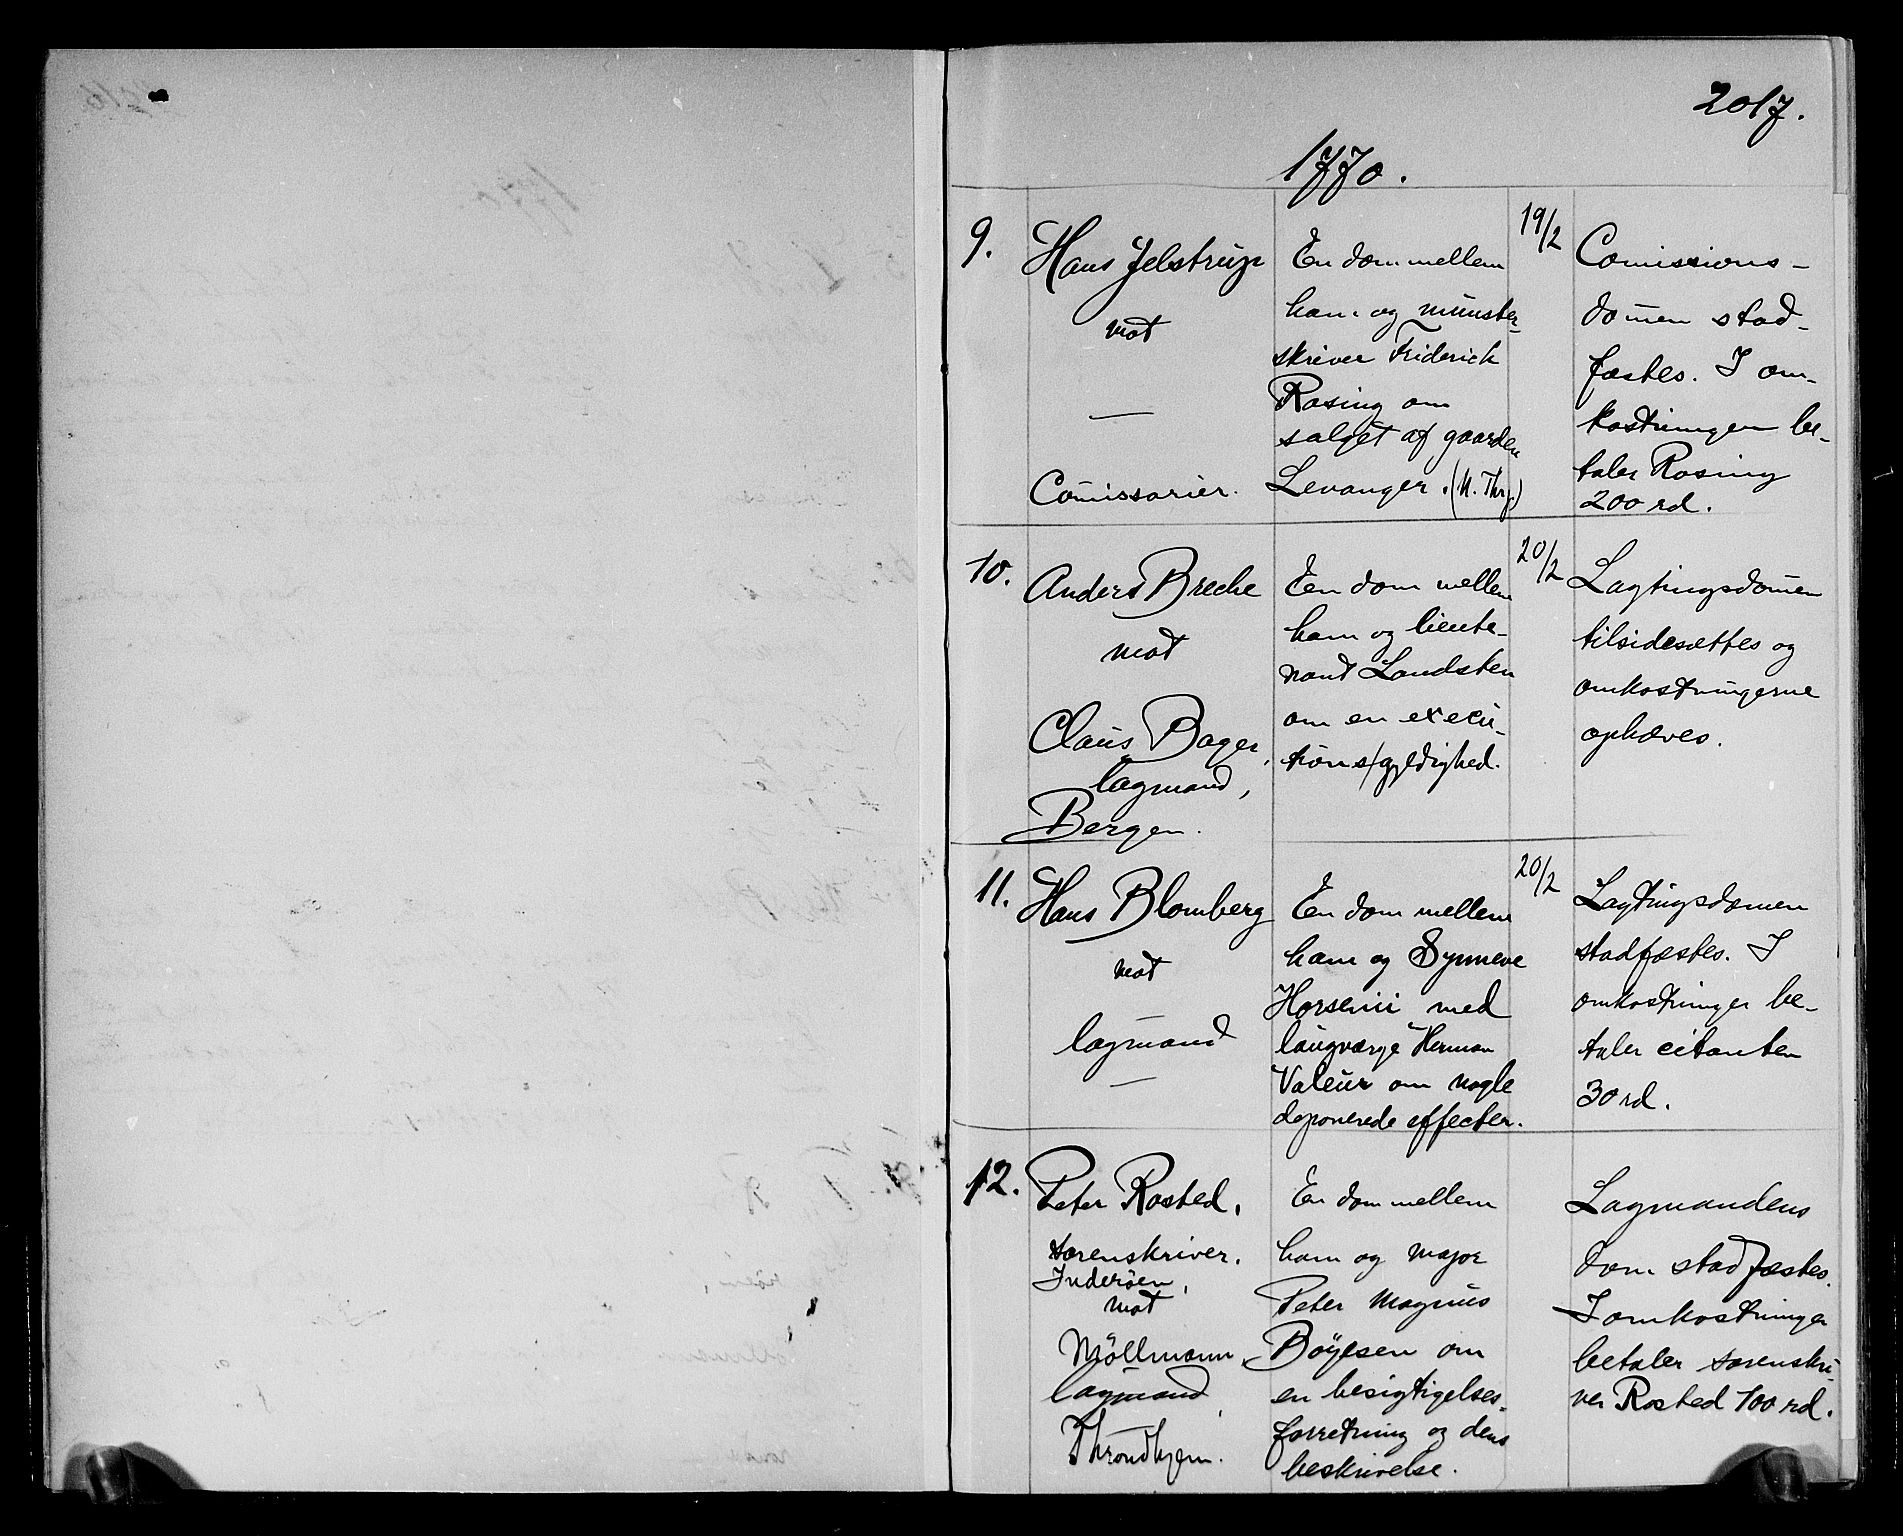 2017.
1770.
9.
Hans Jelstrup
mot
—
Comissarier.
En dom mellem
ham og mønster-
skriver Friderich
Rosing om
salget af gaarden
Levanger. (N. Thrj.)
19/2
Comissions-
domen stad-
fæstes. I om-
kostninger be-
taler Rosing
200 rd.
10.
Anders Breche
mot
Claus Bager,
lagmand,
Bergen.
En dom mellem
ham og lieute-
nant Landsten
om en execu-
tions gyldighed.
20/2
Lagtingsdomen
tilsidesættes og
omkostningerne
ophæves.
11.
Hans Blomberg
mot
—
lagmand
—
En dom mellem
ham og Synneve
Horseni med
laugværge Herman
Valeur om nogle
deponerede effecter.
20/2
Lagtingsdomen
stadfæstes. I
omkostninger be-
taler citanten
30 rd.
12.
Peter Rosted,
sorenskriver.
Inderöen,
mot
Möllmann,
lagmand,
Throndhjem.
En dom mellem
ham og major
Peter Magnus
Böyesen om
en besigtigelses-
forretning og dens
beskrivelse.
Lagmandens
dom stadfæstes.
I omkostninger
betaler sorenskri-
ver Rosted 100 rd.